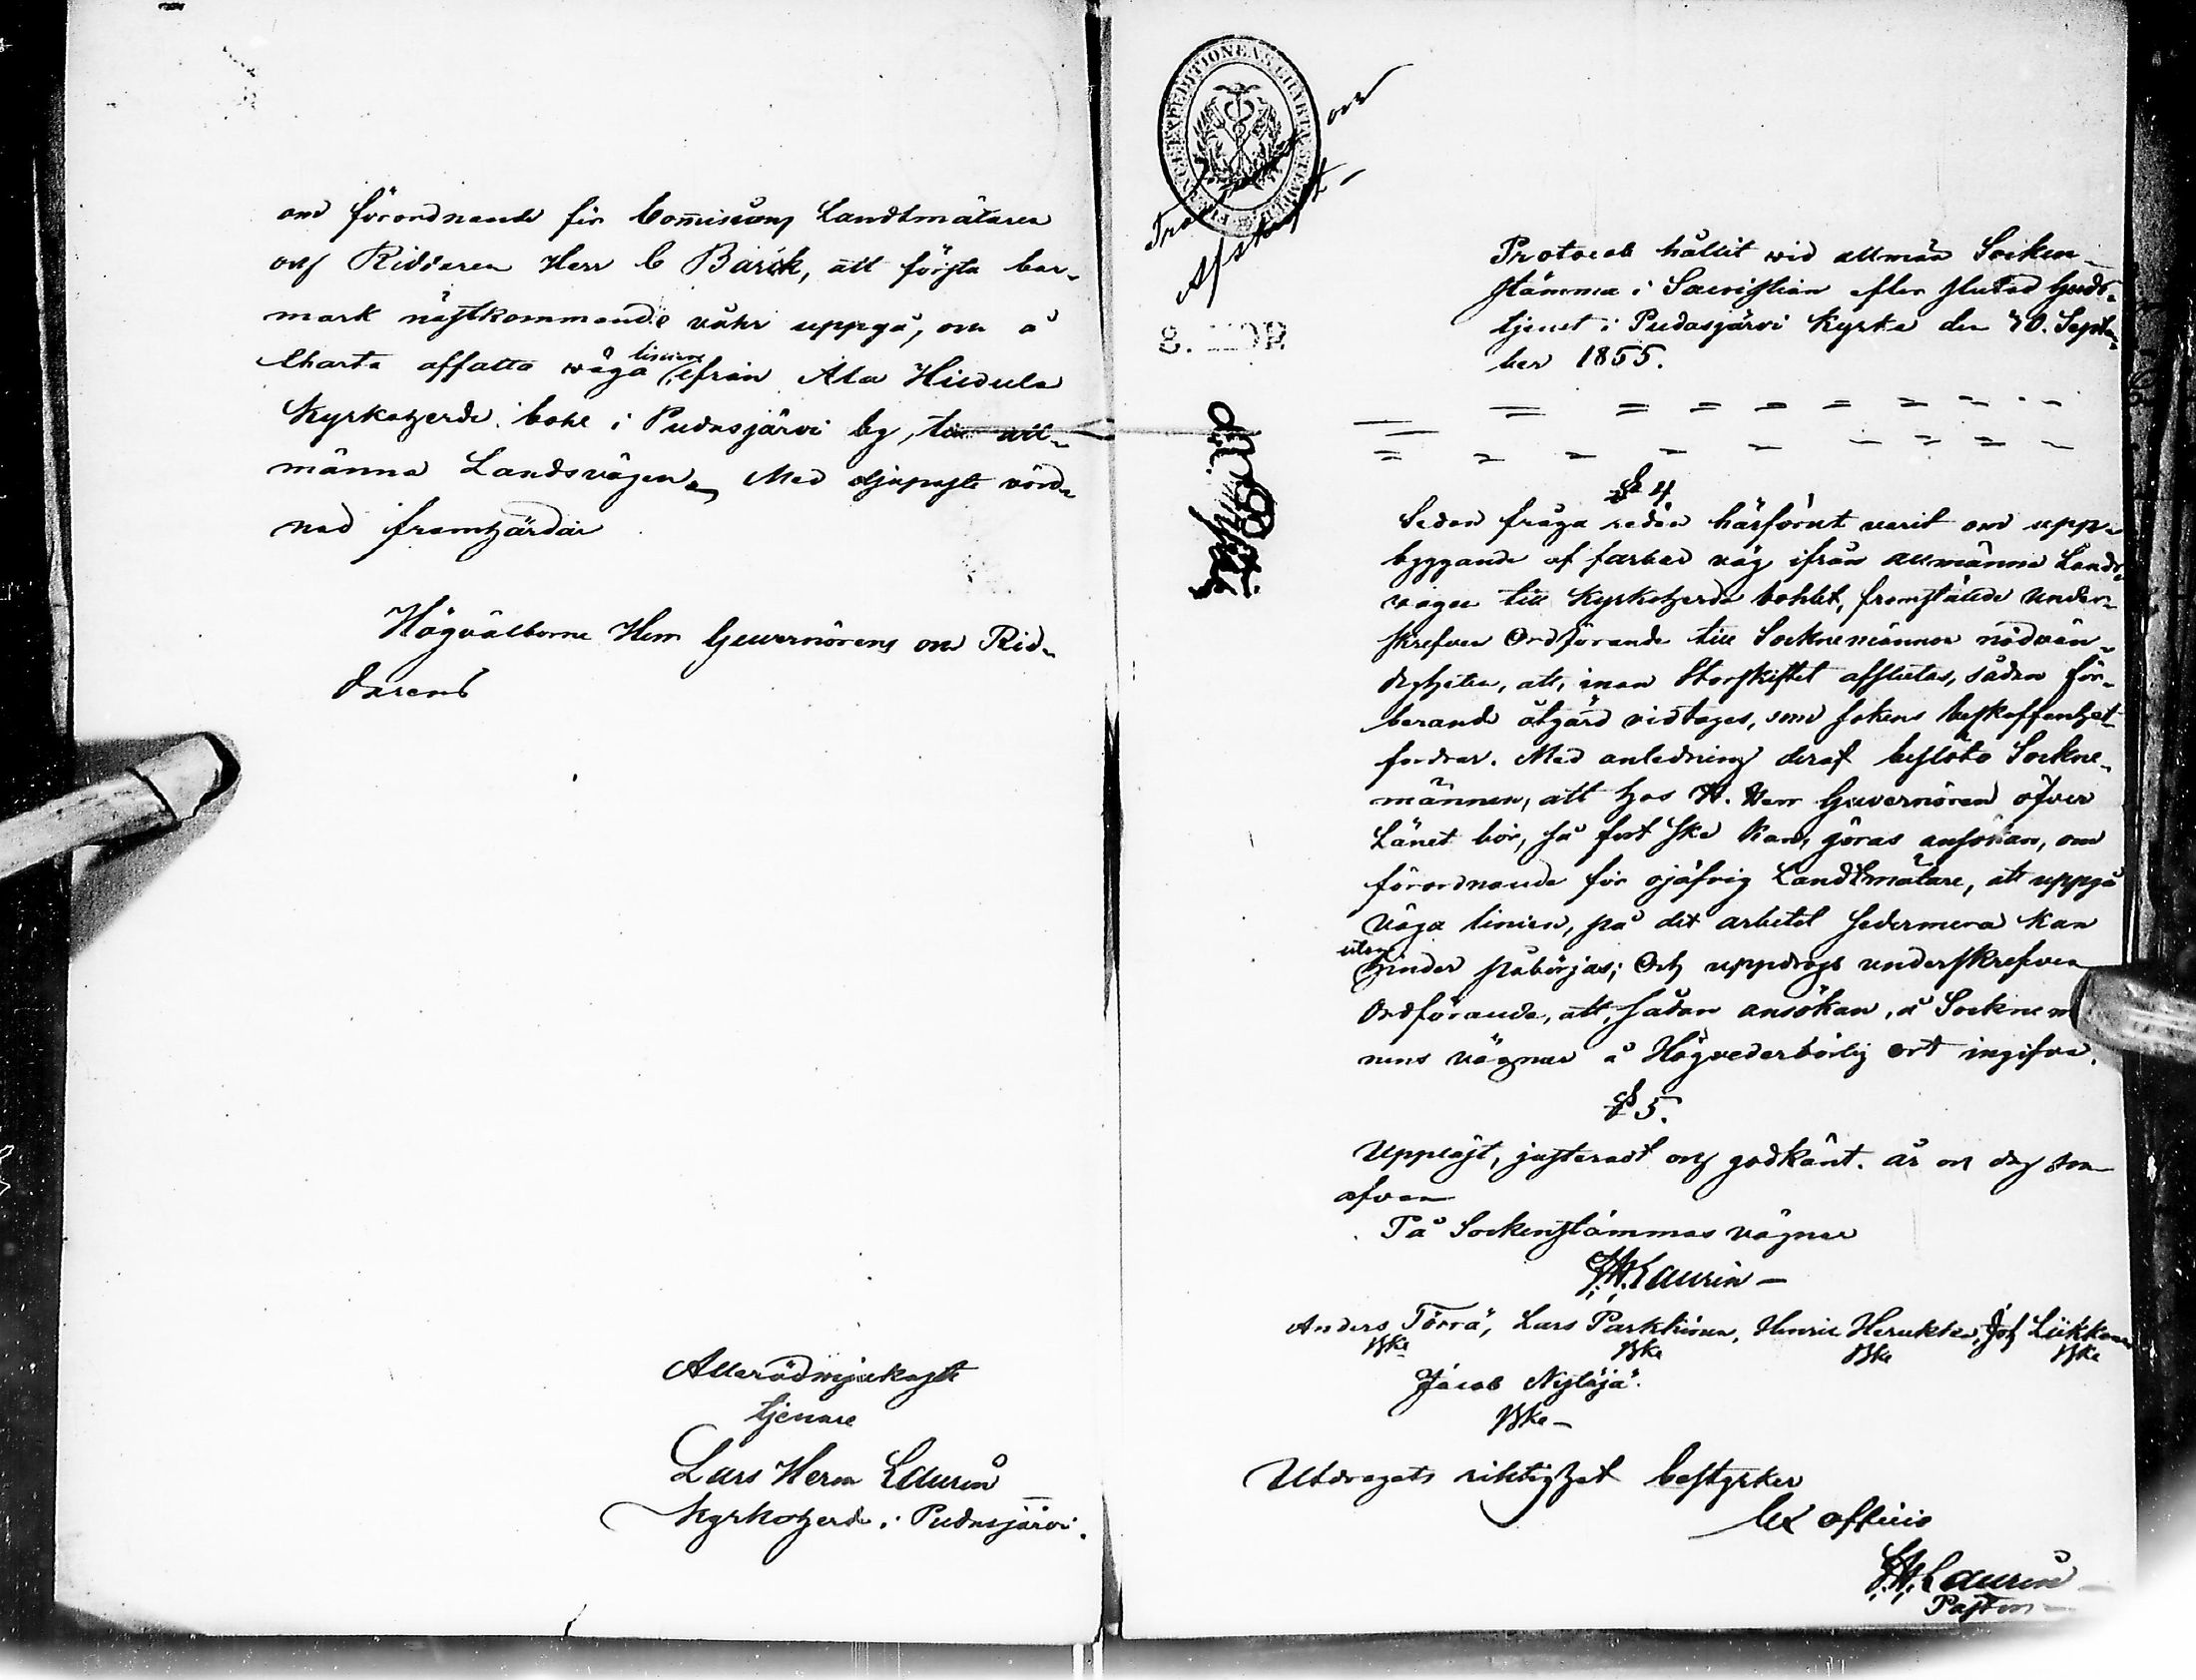 om förordnande för Commissions Landtmätaren
och Riddaren Herr C Barck, att första bar-
mark nästkommande våhr uppgå, en å
Charta affatta wäga linien ifrån Ala Hiedula
Kyrkoherde bohl i Pudasjärvi by, till all-
männa Landsvägen. Med djupaste vörd-
nad framhärdar
Högvälborne Herr Gouvernörens och Rid-
darens
Allerödmjukaste
tjenare
Lars Herm Laurin
Kyrkoherde i Pudasjärvi.
Afskrift
8. KOP.
Protocoll hållit wid allmän Socken-
stämma i Sacristian efter slutad Guds-
tjenst i Pudasjärvi Kyrka den 30. Septem-
ber 1855.
§ 4.
Sedan fråga redan härförut varit om upp-
byggande af farbar väg ifrån allmänna Lands-
vägen till Kyrkoherde bohlet, framstälde under-
skrefven Ordförande till Socknemännen nödvän-
digheten, att, innan Storskiftet afslutas, sådan för-
berande åtgärd vidtages, som sakens beskaffenhet
fordrar. Med anledning deraf beslöto Sockne-
männen, att hos H. Herr Gouvernören öfver
Länet bör, så fort ske kan, göras ansökan, om
förordnande för ojäfvig Landtmätare, att uppgå
Väga linien, på det arbetet sedermera kan
utan hinder påbörjas; Och uppdrogs underskrefven
Ordförande, att, sådan ansökan, å Socknem
nens vägnar å Högvederbörlig ort ingifva.
§ 5.
Uppläst, justeradt och godkänt. år och dag som
ofvan
På Sockenstämmas vägnar
L.H. Laurin
Anders Törrä, Lars Parkkinen, Henric Herukka, Joh Liikkanen
Jacob Nyläjä.
Utdragets riktighet bestyrker
Ex officio
L.H. Laurin
Pastor